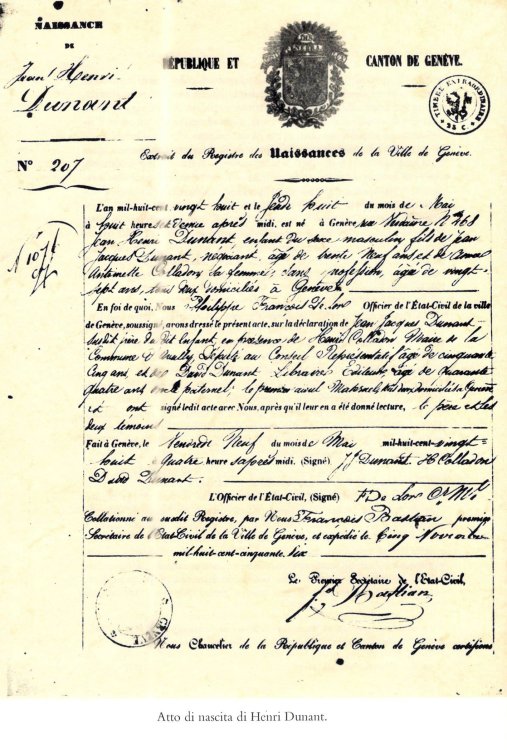 NAISSANCE
DE
Jean Henri
Dunant
RÉPUBLIQUE ET
CANTON DE GENÈVE.
TIMBRE EXTRAORDINAIRE
25 C
N° 207
Extrait du Registre des Naissances de la Ville de Genève.
L'an mil-huit-cent vingt huit et le Jeudi huit du mois de Mai
à huit heures et demie après midi, est né à Genève, rue Verdaine N° 268
Jean Henri Dunant, enfant du sexe masculin, fils de Jean
Jacques Dunant, négociant, âgé de trente neuf ans et de Anne
Antoinette Colladon sa femme, sans profession, âgée de vingt
sept ans, tous deux domiciliés à Genève
En foi de quoi, Nous Philippe François De Lor Officier de l'État-Civil de la ville
de Genève, soussigné, avons dressé le présent acte, sur la déclaration de Jean Jacques Dunant
susdit père du dit Enfant, en présence de Henri Colladon Maire de la
Commune d' Député au Conseil Représentatif âgé de cinquante
Cinq ans et de David Dunant Libraire Editeur, âgé de quarante
quatre ans oncle paternel; le premier aieul Maternel, domiciliés à Genève
et ont signé ledit acte avec Nous, après qu'il leur en a été donné lecture, le père et les
deux témoins
Fait à Genève, le Vendredi Neuf du mois de Mai mil-huit-cent-vingt-
huit à quatre heures après midi. (Signé) J. Dunant. H. Colladon
David Dunant.
L'Officier de l'État-Civil, (Signé) F. De Lor
Collationné au susdit Registre, par Nous François Bastian premier
Secrétaire de l'État-Civil de la Ville de Genève, et expédié le Cinq Novembre
mil-huit-cent-cinquante six
Le Premier Secrétaire de l'Etat-Civil,
Bastian
GENÈVE
Nous Chancelier de la République et Canton de Genève certifions
Atto di nascita di Henri Dunant.